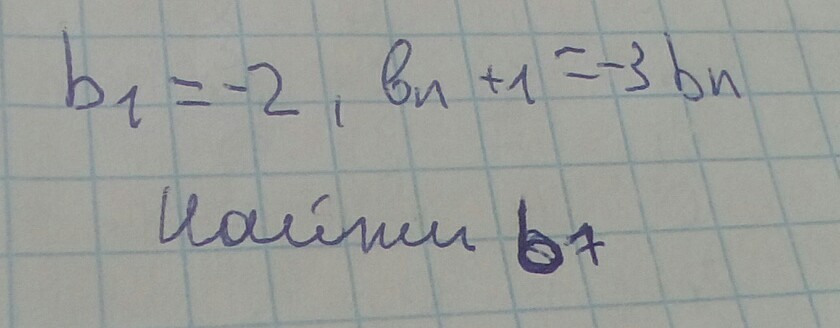 b₁ = -2, bn +1 = -3 bn
Найти b7